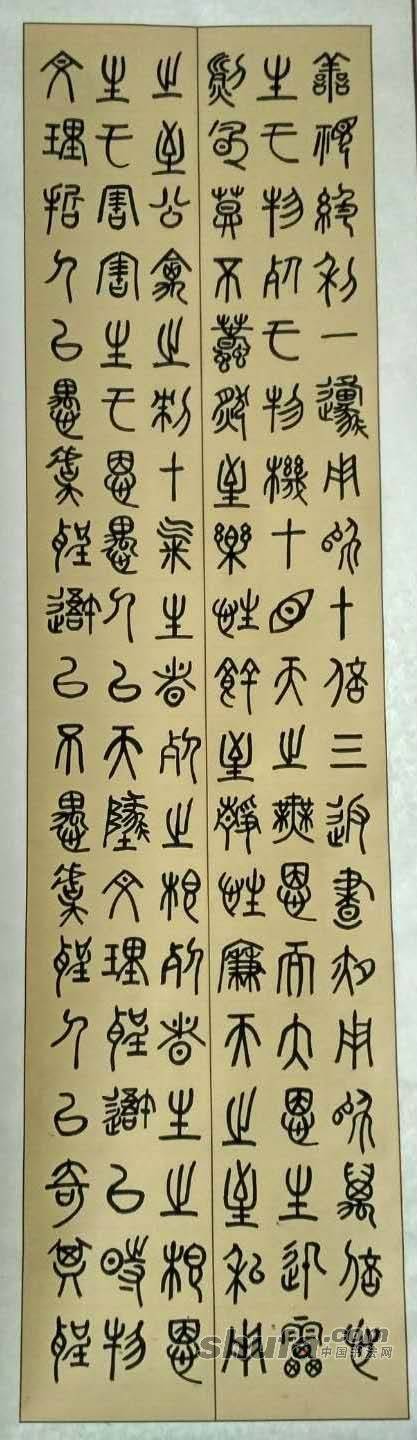 善視絕利一源用師十倍三返晝夜用師萬倍心
生于物死于物機在目天之無恩而大恩生迅雷
烈風莫不蠢然至樂性餘至靜性廉天之至私用
之至公禽之制在氣生者死之根死者生之根恩
生于害害生于恩愚人以天地文理聖我以時物
文理哲人以愚虞聖我以不愚虞聖人以奇其聖
中国书法网